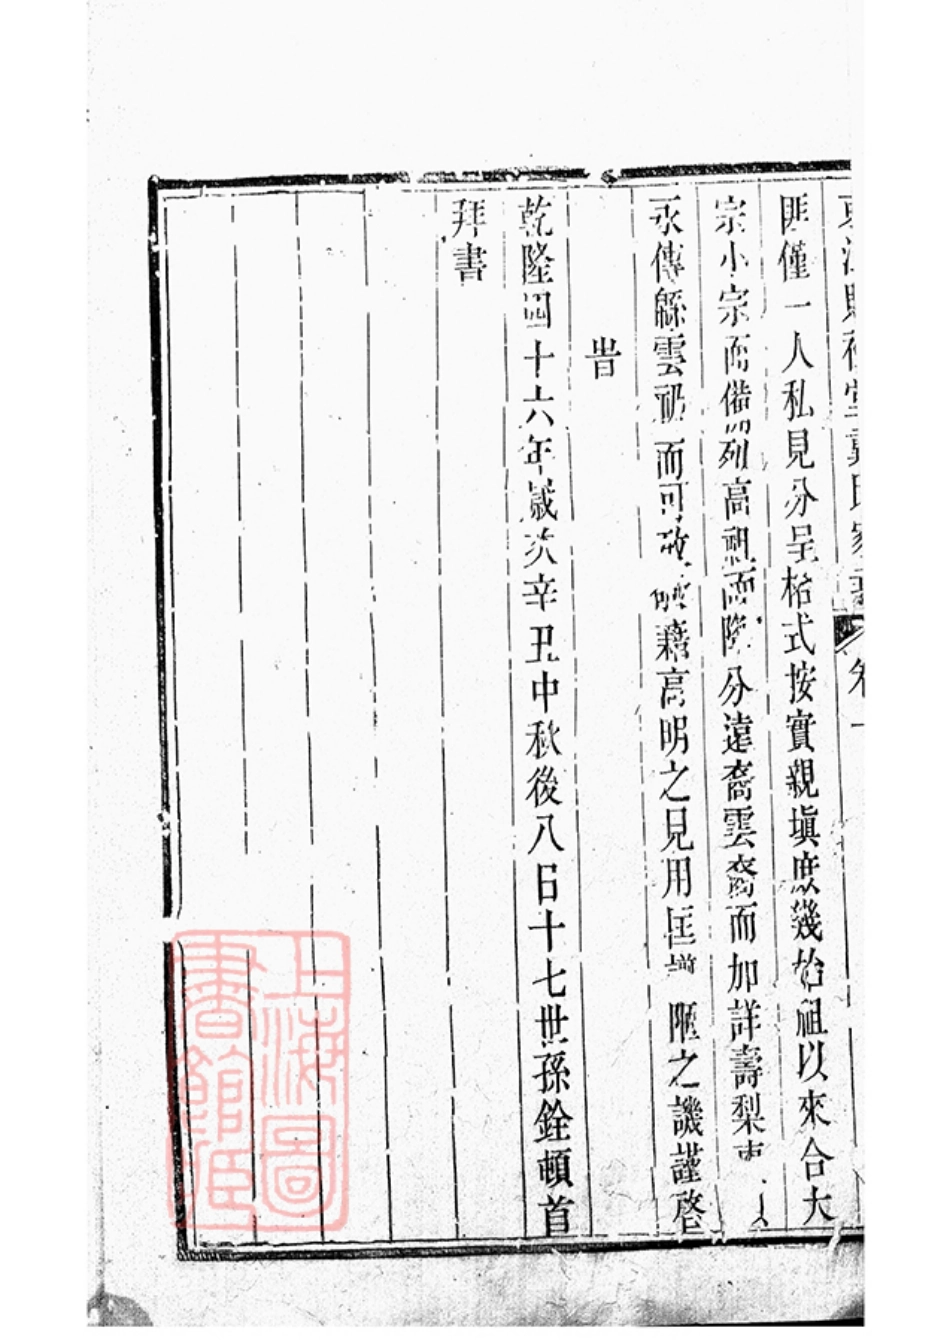 匪僅一人私見分呈格式按實親塡庶幾始祖以來合大
宗小宗而備列高祖而隆分遠裔雲裔而加詳壽梨棗
永傳緜雲礽而可攷藉高明之見用匡譜陋之譏謹啓
旹
乾隆四十六年歲次辛丑中秋後八日十七世孫銓頓首
拜書
卷一
上海圖
書館藏